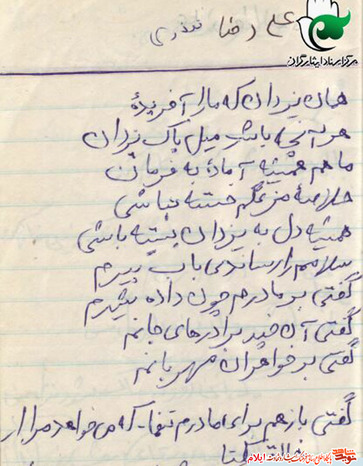 علی رضا
مرکز اسناد ایثارگران
همان یزدان که ما را آفریده
هر آنچه باشد میل پاک یزدان
ما هم همیشه آماده به فرمان
خلاصه من نگم خسته نباشی
همیشه دل به یزدان بسته باشی
سلامم را رساندی باب پیرم
گفتی بر مادرم چون داده شیرم
گفتی آن خبر برادرهای جانم
گفتی بر خواهران مهربانم
گفتی باز هم برای مادرم تنها که می‌خواهد مرا از
ایلام